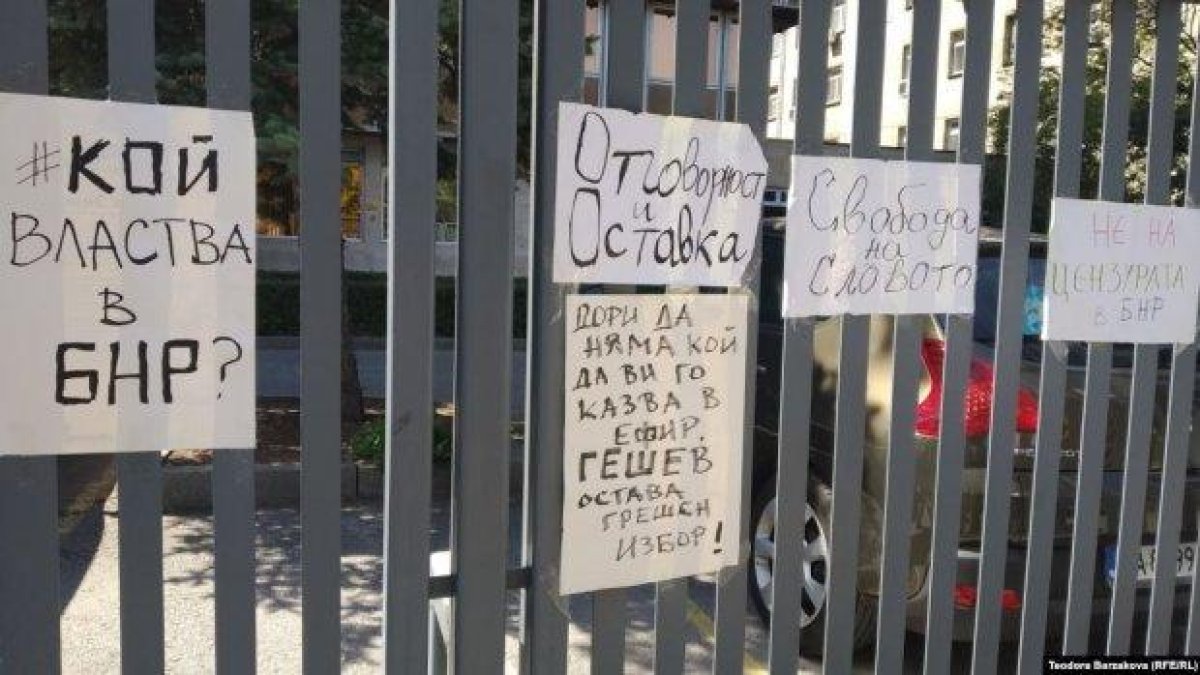 #КОЙ
ВЛАСТВА
В
БНР?
Отговорност
и
Оставка
ДОРИ ДА
НЯМА КОЙ
ДА ВИ ГО
КАЗВА В
ЕФИР,
ГЕШЕВ
ОСТАВА
ГРЕШЕН
ИЗБОР!
Свобода
на
Словото
НЕ НА
ЦЕНЗУРАТА
в БНР
Teodora Barzakova (RFE/RL)